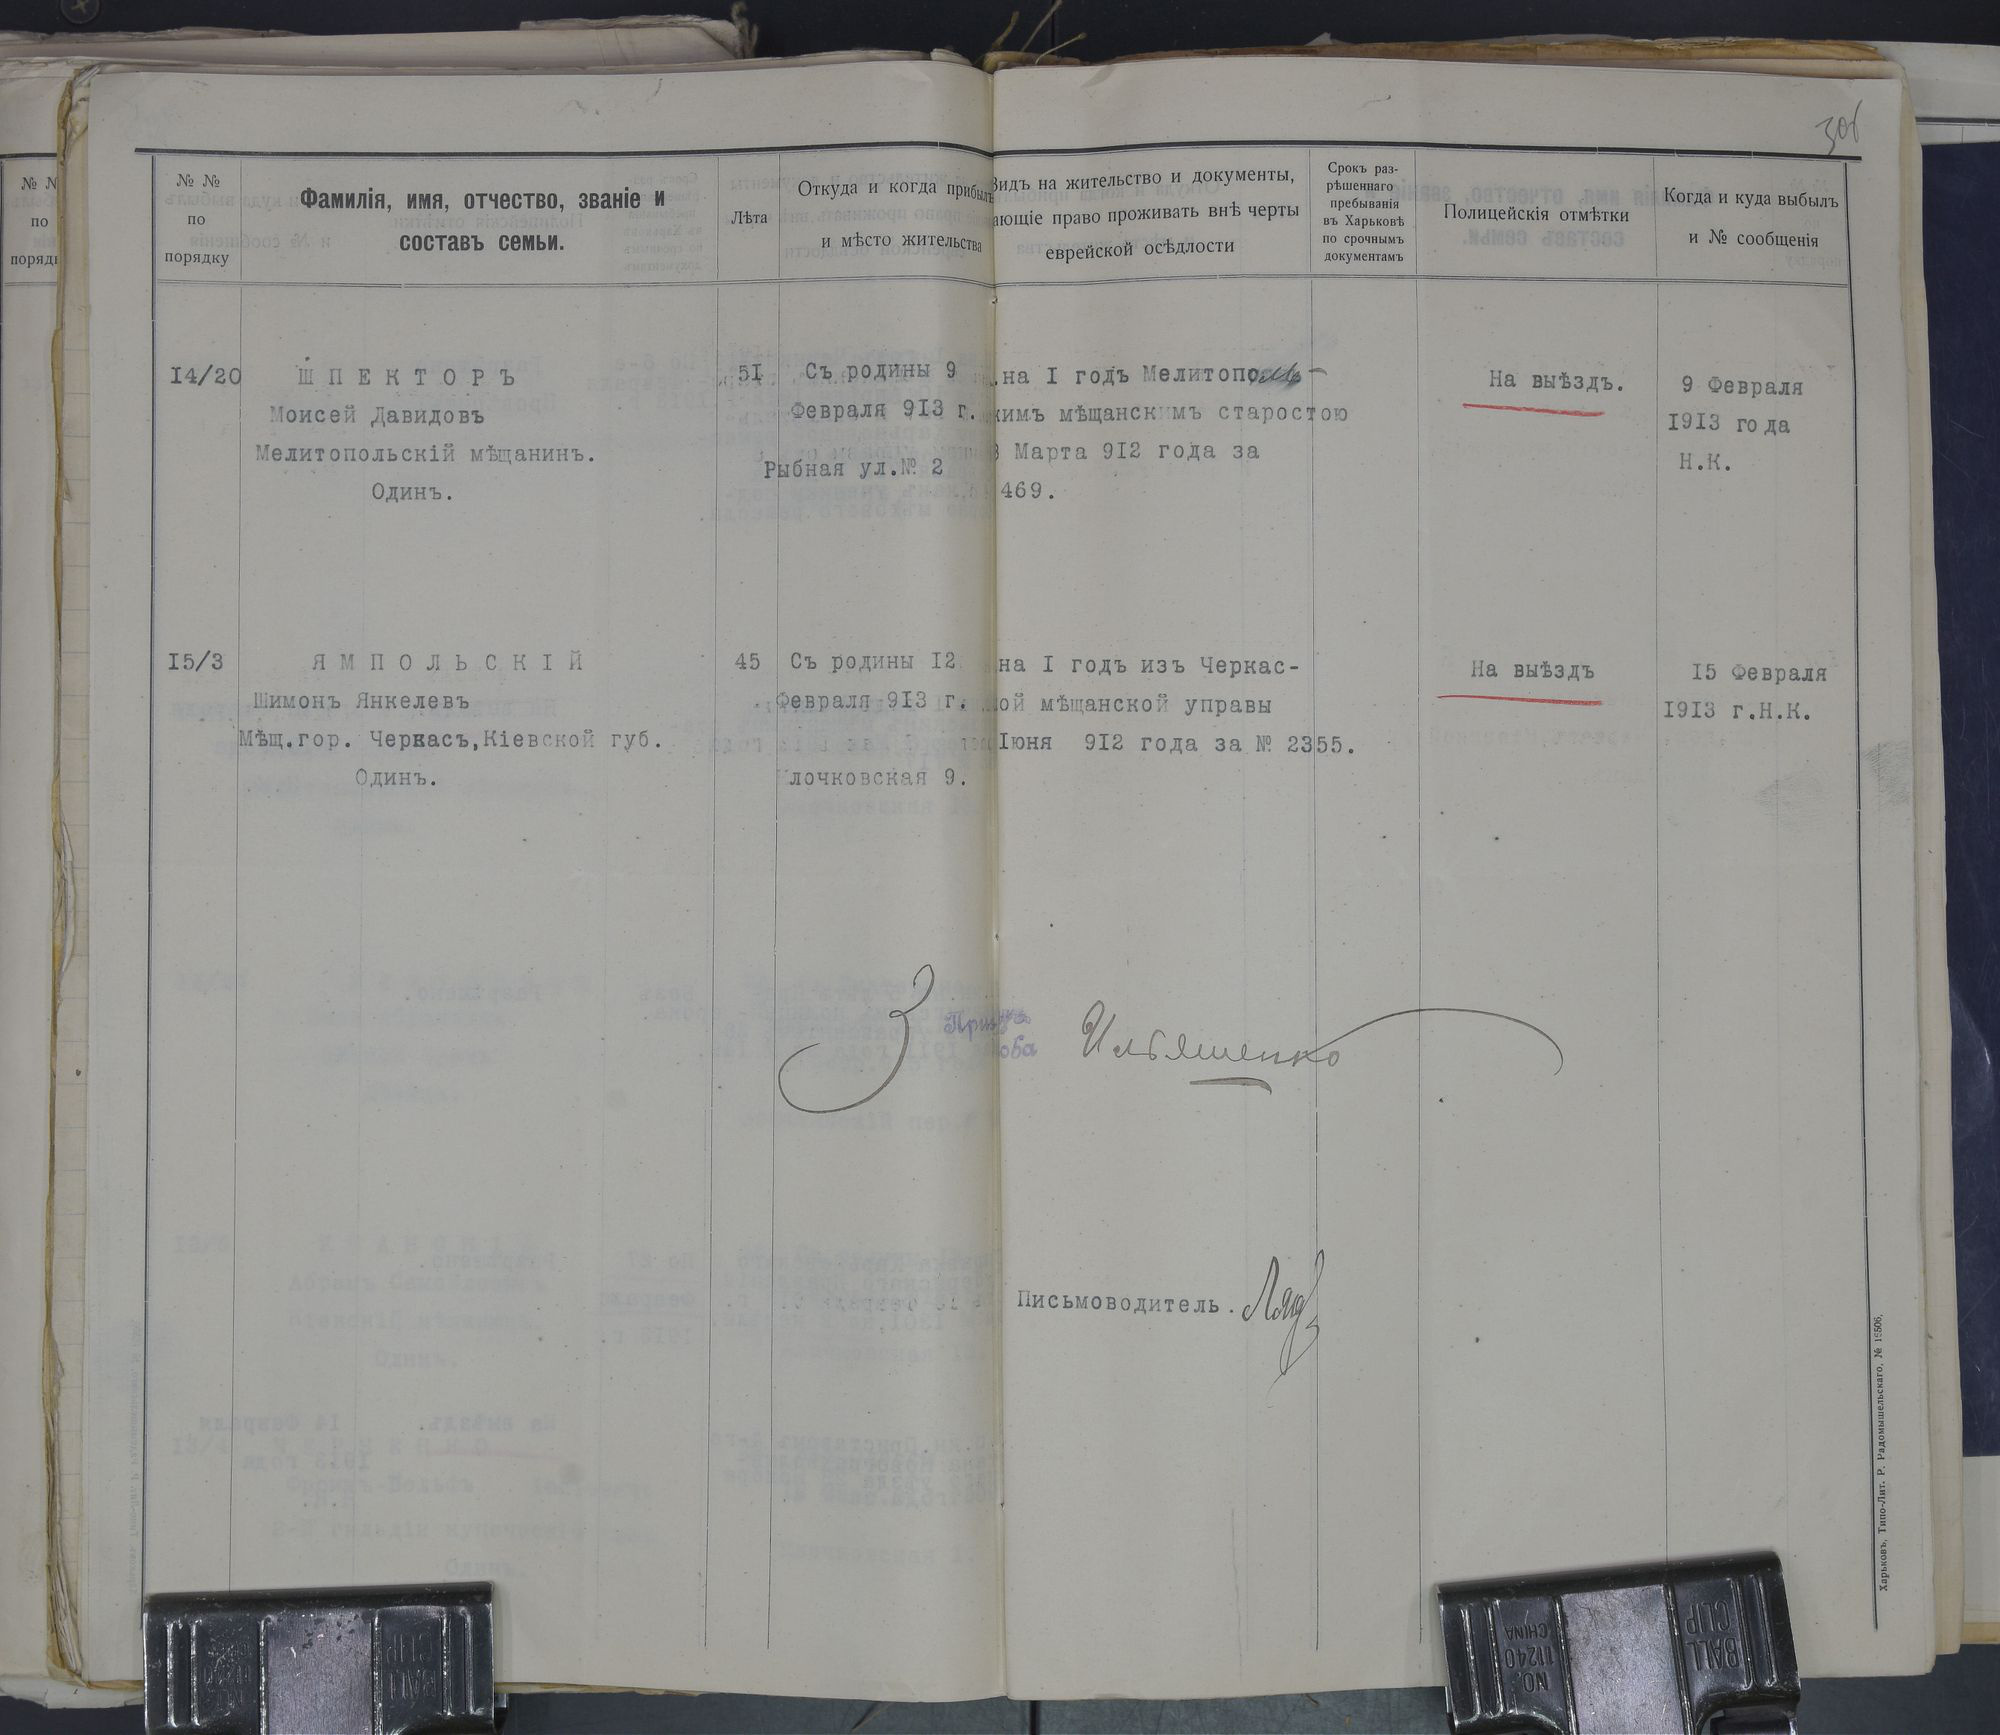 306
№ №
по
порядку
Фамилія, имя, отчество, званіе и
составъ семьи.
Лѣта
Откуда и когда прибылъ
и мѣсто жительства
Видъ на жительство и документы,
ающіе право проживать внѣ черты
еврейской осѣдлости
Срокъ раз-
рѣшеннаго
пребыванія
въ Харьковѣ
по срочнымъ
документамъ
Полицейскія отмѣтки
Когда и куда выбылъ
и № сообщенія
14/20
ШПЕКТОРЪ
Моисей Давидовъ
Мелитопольскій мѣщанинъ.
Одинъ.
51
Съ родины 9
Февраля 913 г.
Рыбная ул.№ 2
на I годъ Мелитополь-
кимъ мѣщанскимъ старостою
Марта 912 года за
469.
На выѣздъ.
9 Февраля
1913 года
Н.К.
15/3
ЯМПОЛЬСКІЙ
Шимонъ Янкелевъ
Мѣщ.гор. Черкасъ,Кіевской губ.
Одинъ.
45
Съ родины 12
Февраля 913 г.
лочковская 9.
на I годъ изъ Черкас-
ой мѣщанской управы
Іюня 912 года за № 2355.
На выѣздъ
15 Февраля
1913 г.Н.К.
З
Ильяшенко
Письмоводитель.
Харьковъ, Типо-Лит. Р. Радомышельскаго, № 15506.
№ №
по
BALL
CLIP
BALL
CLIP
NO.
11240
CHINA